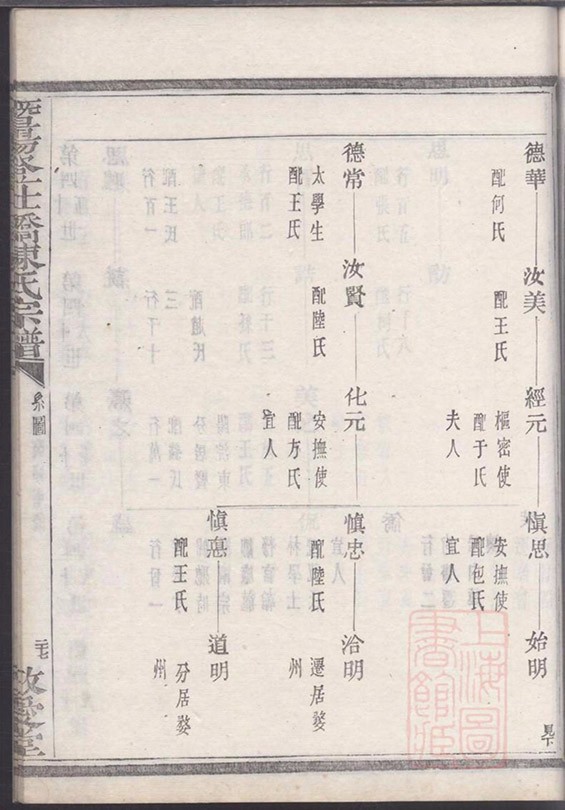 德華
配何氏
汝美
配王氏
經元
樞密使
配于氏
夫人
愼思
安撫使
配包氏
宜人
始明
見下
德常
太學生
配王氏
汝賢
配陸氏
化元
安撫使
配方氏
宜人
愼忠
配陸氏
洽明
遷居婺
州
愼憲
配王氏
道明
分居婺
州
暨陽登仕橋陳氏宗譜
系圖
二十七
敦愛堂
上海圖書館藏